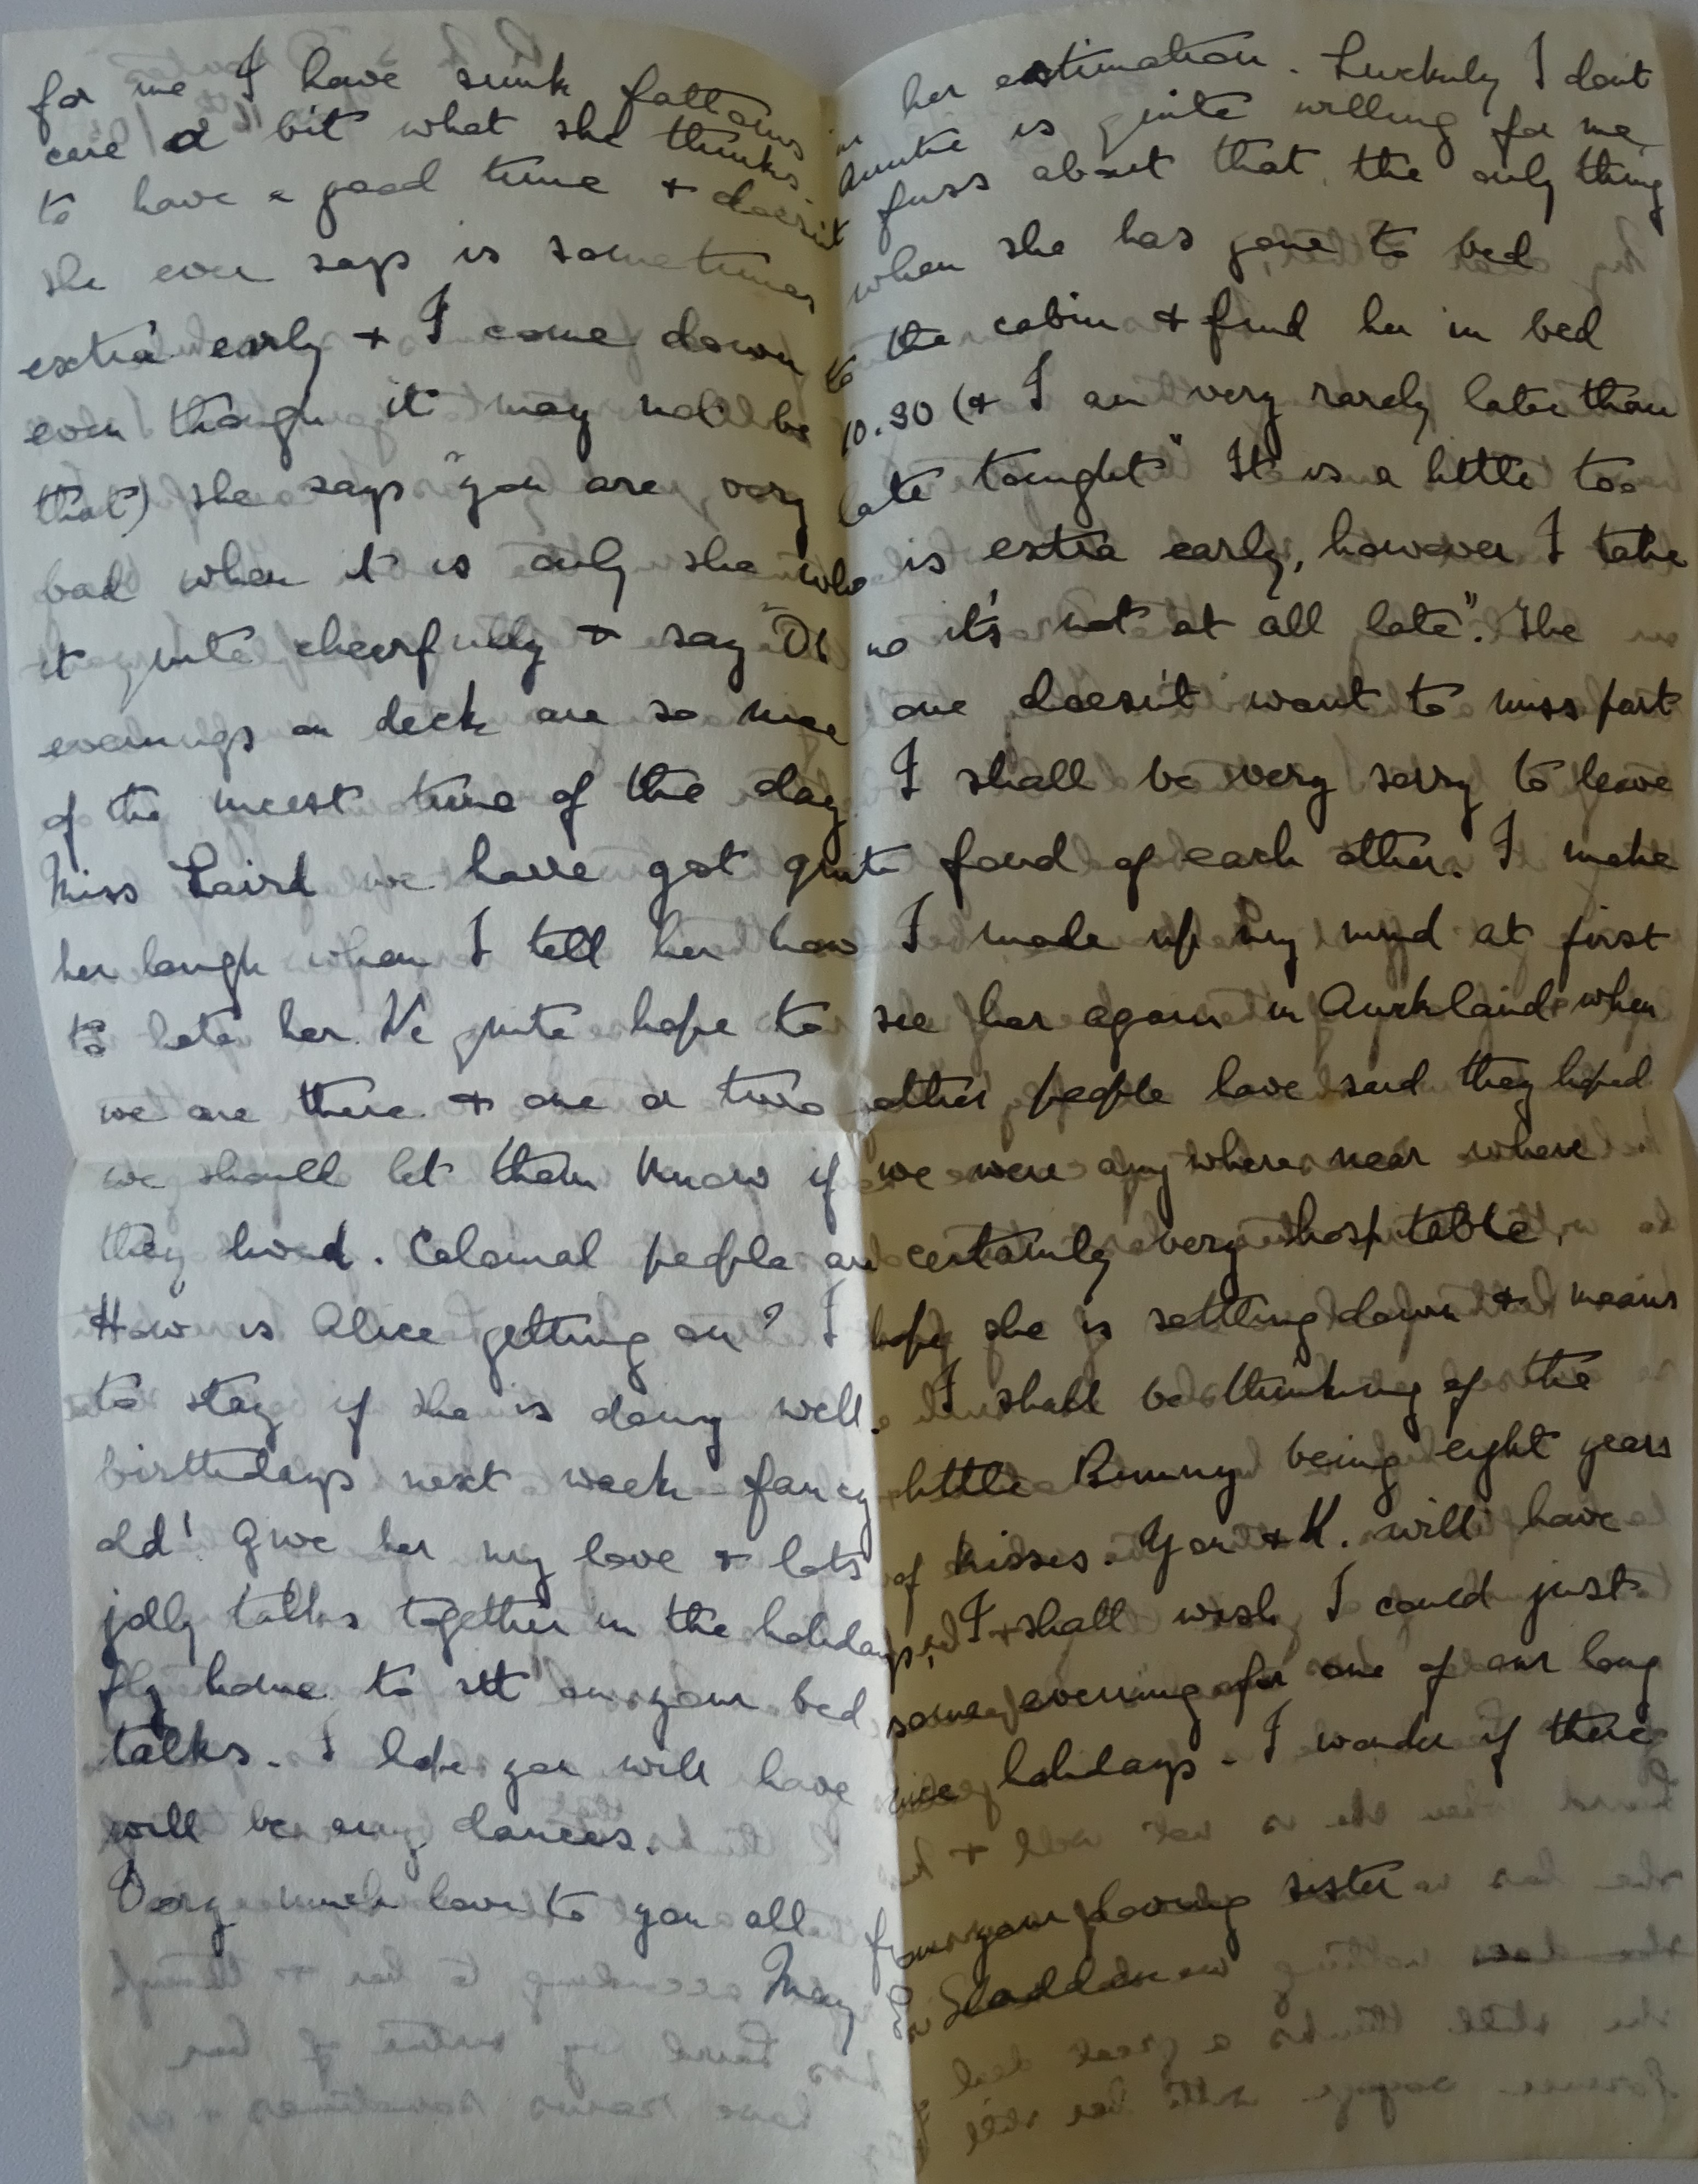 for me I have sunk fathoms in her estimation. Luckily I don't
care a bit what she thinks. Auntie is quite willing for me
to have a good time & doesn't fuss about that, the only thing
she ever says is sometimes when she has gone to bed
extra early & I come down to the cabin & find her in bed
even though it may not be 10.30 (& I am very rarely later than
that) she says "you are very late tonight" It is a little too
bad when it is only she who is extra early, however I take
it quite cheerfully & say "Oh no it's not at all late". The
evenings on deck are so nice one doesn't want to miss part
of the nicest time of the day I shall be very sorry to leave
Miss Laird we have got quite fond of each other. I make
her laugh when I tell her how I made up my mind at first
to hate her. We quite hope to see her again in Auckland when
we are there & one or two other people have said they hoped
we should let them know if we were any where near where
they lived. Colonial people are certainly very hospitable.
How is Alice getting on? I hope she is settling down & means
to stay if she is doing well. I shall be thinking of the
birthdays next week fancy little Bunny being eight years
old! Give her my love & lots of kisses. You & K. will have
jolly talks together in the holidays, I shall wish I could just
fly home to sit on your bed some evening for one of our long
talks. I hope you will have nice holidays - I wonder if there
will be any dances.
Very much love to you all from your loving sister
May E. Sladden